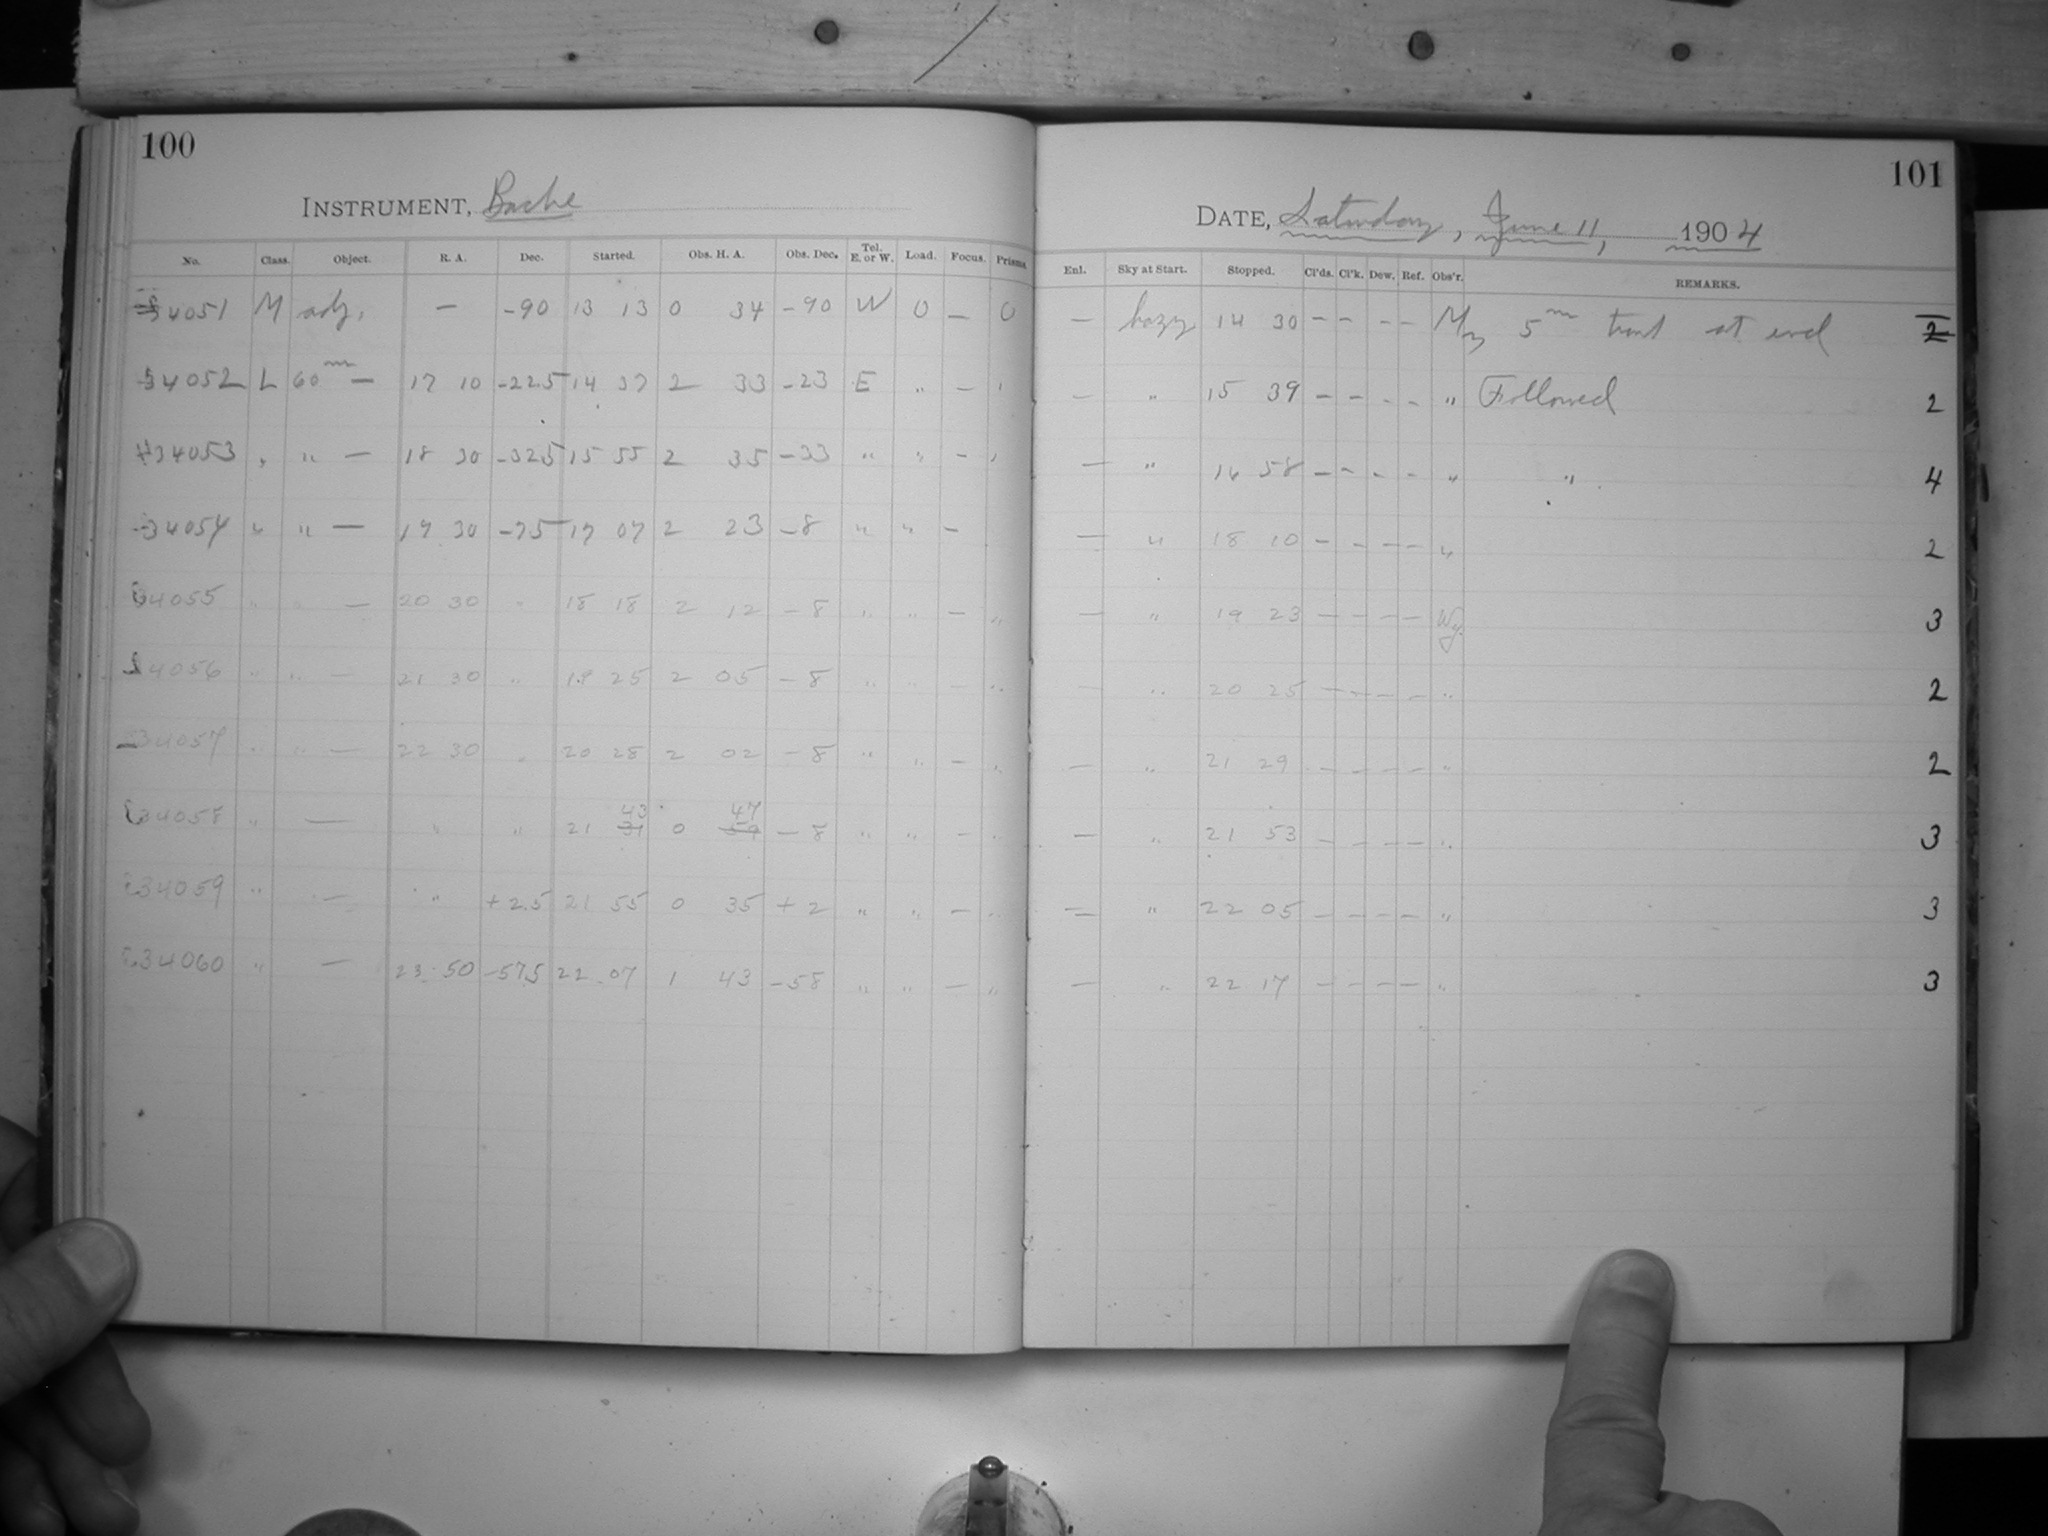 100
INSTRUMENT, Bache
No. Class. Object. R. A. Dec. Started. Obs. H. A. Obs. Dec. Tel. E. or W. Load. Focus. Prisms
34051 M adj. — -90 13 13 0 34 -90 W 0 — 0
34052 L 60m — 17 10 -22.5 14 37 2 33 -23 E " —
34053 " " — 18 30 -32.5 15 55 2 35 -33 " " —
34054 " " — 19 30 -7.5 17 07 2 23 -8 " " —
34055 " " — 20 30 " 18 18 2 12 -8 " " — "
34056 " " — 21 30 " 19 25 2 05 -8 " " — "
34057 " " — 22 30 " 20 28 2 02 -8 " " — "
34058 " — " " 21 43 0 47 -8 " " — "
34059 " — " +2.5 21 55 0 35 +2 " " — "
34060 " — 23 50 -57.5 22 07 1 43 -58 " " — "
101
DATE, Saturday, June 11, 1904
Enl. Sky at Start. Stopped. Cl'ds. Cl'k. Dew. Ref. Obs'r. REMARKS.
— hazy 14 30 — — — — 5m at end 2
— " 15 39 — — — — " Followed 2
— " 16 58 — — — — " " 4
— " 18 10 — — — — " 2
— " 19 23 — — — — Wy. 3
— " 20 25 — — — — " 2
— " 21 29 — — — — " 2
— " 21 53 — — — — " 3
— " 22 05 — — — — " 3
— " 22 17 — — — — " 3